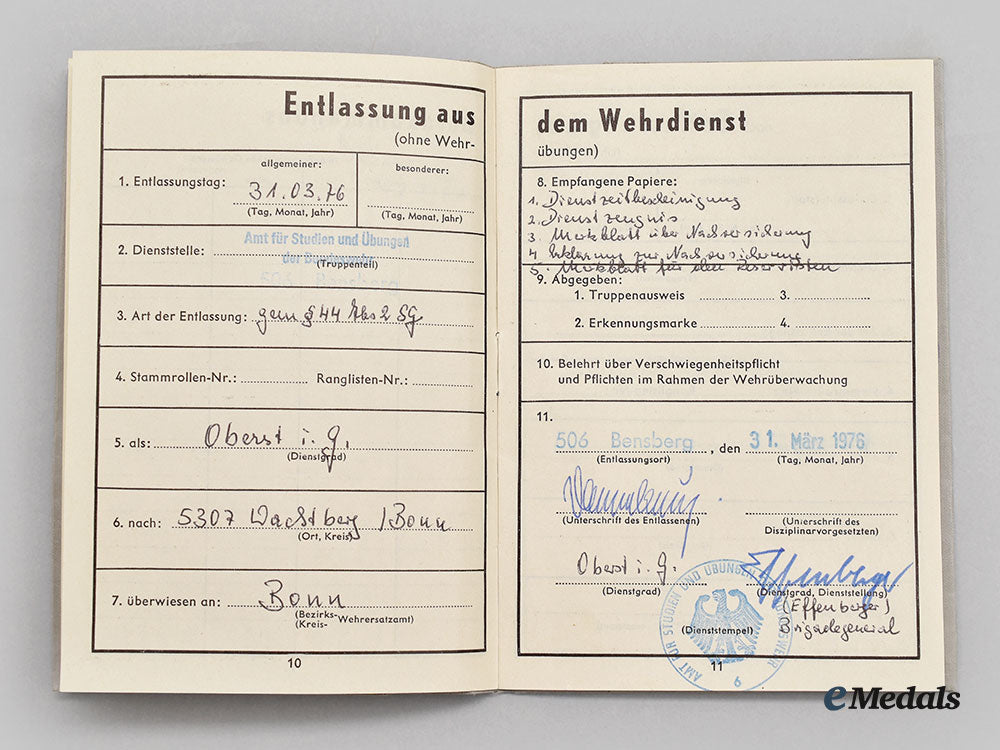 Entlassung aus
(ohne Wehr-
allgemeiner:
besonderer:
1. Entlassungstag: 31.03.76
(Tag, Monat, Jahr)
(Tag, Monat, Jahr)
Amt für Studien und Übungen
2. Dienststelle: der Bundeswehr
(Truppenteil)
3. Art der Entlassung: gem § 44 Abs 2 SG
4. Stammrollen-Nr.: Ranglisten-Nr.:
5. als: Oberst i. G.
(Dienstgrad)
6. nach: 5307 Wachtberg / Bonn
(Ort, Kreis)
7. überwiesen an: Bonn
(Bezirks-
(Kreis- Wehrersatzamt)
10
dem Wehrdienst
übungen)
8. Empfangene Papiere:
1. Dienstzeitbescheinigung
2. Dienstzeugnis
3. Merkblatt über Nachversicherung
4. Erklärung zur Nachversicherung
5. Merkblatt für den Reservisten
9. Abgegeben:
1. Truppenausweis 3.
2. Erkennungsmarke 4.
10. Belehrt über Verschwiegenheitspflicht
und Pflichten im Rahmen der Wehrüberwachung
11.
506 Bensberg, den 31. März 1976
(Entlassungsort) (Tag, Monat, Jahr)
(Unterschrift des Entlassenen)
(Unterschrift des
Disziplinarvorgesetzten)
Oberst i. G. Effenberger
(Dienstgrad) (Dienstgrad, Dienststellung)
(Effenberger)
(Dienststempel) Brigadegeneral
AMT FÜR STUDIEN UND ÜBUNGEN DER BUNDESWEHR
6
11
eMedals